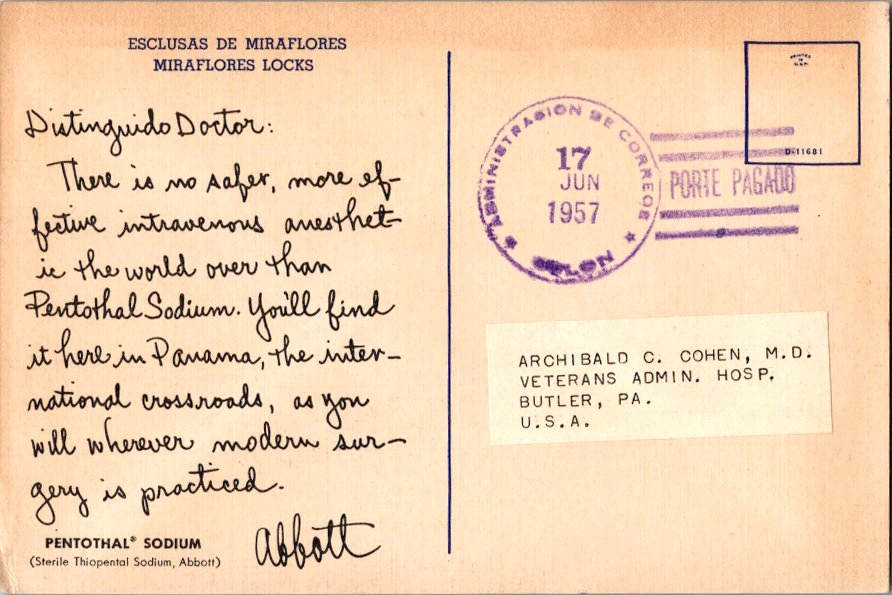 ESCLUSAS DE MIRAFLORES
MIRAFLORES LOCKS
Distinguido Doctor:
There is no safer, more ef-
fective intravenous anesthet-
ic the world over than
Pentothal Sodium. You'll find
it here in Panama, the inter-
national crossroads, as you
will wherever modern sur-
gery is practiced.
Abbott
PENTOTHAL® SODIUM
(Sterile Thiopental Sodium, Abbott)
ADMINISTRACION DE CORREOS
17
JUN
1957
COLON
PORTE PAGADO
PRINTED
IN
U.S.A.
D-11681
ARCHIBALD C. COHEN, M.D.
VETERANS ADMIN. HOSP.
BUTLER, PA.
U.S.A.